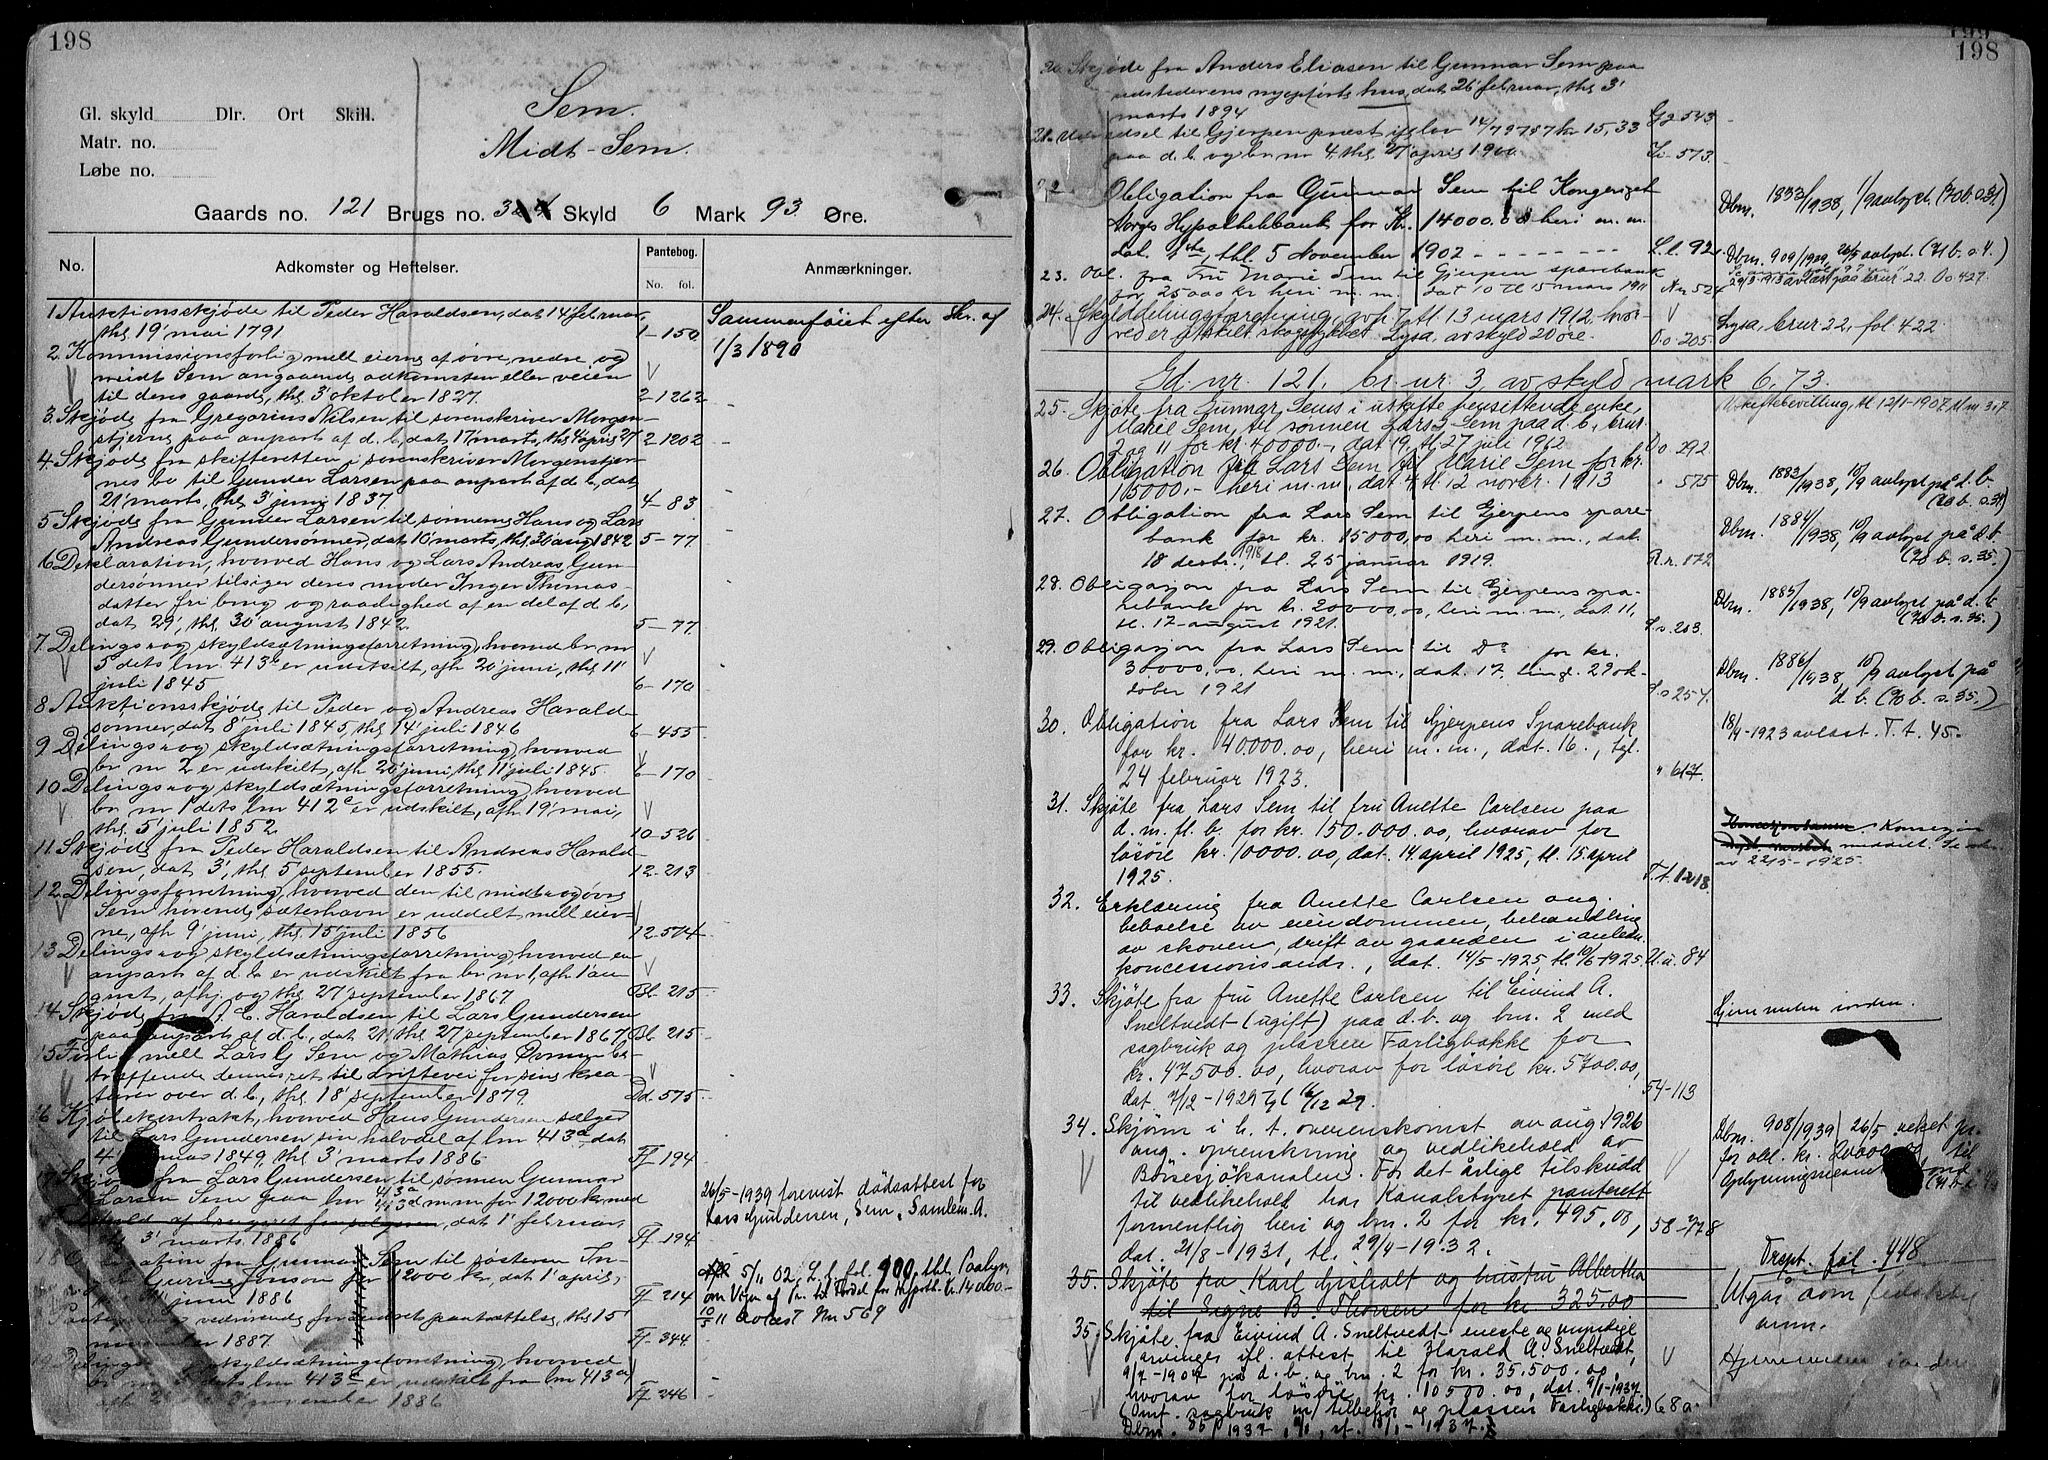 198
Sem.
Gl. skyld Dlr. Ort Skill.
Matr. no.
Midt-Sem.
Løbe no.
Gaards no. 121 Brugs no. 3 Skyld 6 Mark 93 Øre.
No. Adkomster og Heftelser. Pantebog. No. fol. Anmærkninger.
1 Auktionsskjøde til Peder Haraldsen, dat 14 februar,
thl 19' mai 1791 1-150 Sammenføiet efter Skr. af
1/3 1890
2. Kommissionsforlig mell eierne af øvre, nedre og
meidt Sem angaaende adkomsten eller veien
til deres gaarde, thl 3' oktober 1827. 2-1262
3. Skjøde fra Gregorius Nilsen til sorenskriver Morgen-
stjerne paa anpart af d. b, dat 17' marts, thl 4' april 27 2-1202
4 Skjøde fra skifteretten i sorenskriver Morgenstjer-
nes bo til Gunder Larsen paa anpart af d b, dat
21' marts, thl 3' juni 1837. 4-83
5 Skjøde fra Gunder Larsen til sønnerne Hans og Lars
Andreas Gundersønner, dat 10' marts, thl 30' aug 1842 5-77.
6 Deklaration, hvorved Hans og Lars Andreas Gun-
dersønner tilsiger deres moder Inger Thomas-
datter fri brug og raadighed af en del af d b,
dat 29', thl 30' august 1842. 5-77.
7 Delings og skyldsætningsforretning, hvorved br nr
5 dets lnr 413b er udskilt, afh 20' juni, thl 11'
juli 1845 6-170
8 Auktionsskjøde til Peder og Andreas Harald-
sønner, dat 8' juli 1845, thl 14' juli 1846 6-453
9 Delings og skyldsætningsforretning, hvorved
br nr 2 er udskilt, afh 20' juni, thl 11' juli 1845. 6-170
10 Delings og skyldsætningsforretning, hvorved
br nr 1 dets lnr 412c er udskilt, afh 19' mai,
thl 5' juli 1852 10-526
11. Skjøde fra Peder Haraldsen til Andreas Harald-
sen, dat 3', thl 5' september 1855. 12-213
12. Delingsforretning, hvorved den til midtre og øvre
Sem hørende sæterhavn er uddelt mell eier-
ne, afh 9' juni, thl 15' juli 1856 12-574
13 Delings og skyldsætningsforretning, hvorved en
anpart af d. b. er udskilt fra br nr 1, afh 1' au-
gust, afhj. og thl 27' september 1867. Bb 215
14 Skjøde fra A. C. Haraldsen til Lars Gundersen
paa anpart af d. b, dat 21', thl 27' september 1867 Bb 215
15 Forlig mell Lars G Sem og Mathias be-
træffende dennes ret til driftevei for sine krea-
turer over d. b, thl 18' september 1879. Dd. 575
16 Kjøbekontrakt, hvorved Hans Gundersen sælger
til Lars Gundersen sin halvdel af lnr 413a, dat
4' 1849, thl 3' marts 1886 Ff 194
17 Skjøde fra Lars Gundersen til sønnen Gunnar
Larsen Sem paa lnr 413a 413d m. m for 12000 kr med
af brugsret for, dat 1' februar,
thl 3' marts 1886 Ff. 194
26/5-1939 forevist dødsattest for
Lars Gundersen, Sem, Samlem. A.
18 Obligation fra Gunnar Sem til søsteren In-
Gurine Jonson for 12000 kr, dat 1' april,
juni 1886 Ff 214
5/11 02, L. l. fol. 900, thl. Paategn.
om Vign af Pr. til Fordel for Hypoth. Kr. 14000.-
10/5 11 avlæst Nn 569
Paategning vedrørende forandret paatættelse, thl 15'
november 1887. Ff. 344.
19. Delings og skyldsætningsforretning, hvorved
br nr 4 dets lnr 413d er udskilt fra lnr 413a,
afh november 1886 Ff 246
198
20 Skjøde fra Anders Eliasen til Gunnar Sem paa
udstederens nyopførte hus, dat 26' februar, thl 3'
marts 1894 Gg 543
21. til Gjerpen prest iflov 14/7 9757 kr 15,33
paa d. b og br nr 4, thl 27' april 1900. Ii-573.
22 Obligation fra Gunnar Sem til Kongeriget
Norges Hypothekbank for Kr. 14000.00 heri m. m.
dat. 1ste, thl. 5 November 1902 L.l. 92.
Dbm. 1882/1938, 1/9 avlyst. (70 b. s. 31)
23. Obl. fra Fru Marie Sem til Gjerpen sparebank
for 25000 kr heri m. m. dat 10 tl 15 mars 1911 Nn 524
Dbm. 909/1939, 26/5 avlyst. (71 b. s. 4.
29/3-1913 avlæst paa brur 22. Oo 427.
24. Skylddelingsforretning, avh. 7, tl. 13 mars 1912, hvor-
ved er utskilt skogstykket Lysa, av skyld 20 øre. Oo 205.
Lysa, brur 22, fol 422
Gd. nr. 121, br. nr. 3, av skyld mark 6,73.
25. Skjøte fra Gunnar Sems i uskifte hensittende enke,
Marie Sem, til sønnen Lars Sem paa d. b, brur
2 og 11 for kr. 40000.-, dat 19, tl 27 juli 1912 Oo 292
Uskiftebevilling, tl 12/1-1907, M m 317
26. Obligation fra Lars Sem til Marie Sem for kr.
15000.- heri m. m, dat 4, tl. 12 novbr. 1913 " 575
Dbm. 1883/1938, 10/9 avlyst på d. b
(70 b. s. 31)
27. Obligation fra Lars Sem til Gjerpens spare-
bank for kr. 15000,00 heri m. m., dat.
18 desbr. 1918, tl. 25 januar 1919. R.r. 172
Dbm. 1884/1938, 10/9 avlyst på d. b.
(70 b. s. 35.)
28. Obligasjon fra Lars Sem til Gjerpens spa-
rebank for kr. 20000,00, heri m. m., dat. 11,
tl. 17 august 1921. S.s. 203.
Dbm. 1885/1938, 10/9 avlyst på d. b.
(70 b. s. 35.)
29. Obligasjon fra Lars Sem til Do for kr.
30000,00, heri m. m., dat. 17, tingl. 29 ok-
tober 1921 S.s 257.
Dbm. 1886/1938, 10/9 avlyst på
d. b. (70 b. s. 35.)
30. Obligation fra Lars Sem til Gjerpens Sparebank
for kr. 40.000.00, heri m. m., dat. 16., tgl.
24 februar 1923. " 617.
18/9-1923 avlæst. T. t. 45.
31. Skjøte fra Lars Sem til fru Anette Carlsen paa
d. m. fl. b. for kr. 150.000.00, hvorav for
løsøre kr. 10000.00, dat. 14. april 1925, tl. 15. april
1925. T.t. 1218.
22/5-1925.
32. Erklæring fra Anette Carlsen ang.
beboelse av eiendommen, behandling
av skoven, drift av gaarden i anledn.
koncessionsands., dat. 14/5-1925, tl. 10/6-1925. U.u. 84
33. Skjøte fra fru Anette Carlsen til Eivind A.
Sneltvedt (ugift) paa d. b. og bnr. 2 med
sagbruk og plassen Farligbakke for
kr. 47500.00, hvorav for løsøre kr. 5700.00,
dat. 7/12-1929 tgl 16/12 29. 54-113
Hjemmelen i orden.
34. Skjønn i h. t. overenskomst av aug. 1926
ang. oprenskning og vedlikehold av
Børsesjøkanalen. For det årlige tilskudd
til vedlikehold har Kanalstyret panterett
forrentlig heri og bnr. 2 for kr. 495.00,
dat. 21/8-1931, tl. 29/4-1932. 58-778
Dbm. 908/1939, 26/5 veket pr.
for obl. kr. 20000.00 til
Oplysningsvesenets fond
(71 b. s. 4)
35. Skjøte fra Karl Gisholt og hustru Albertha
til Signe B. Thorsen for kr 325.00
Trspt. fol. 448.
Utgår som feilskrev
anm.
35. Skjøte fra Eivind A. Sneltvedt eneste og myndige
arvinger ifl. attest til Harald A. Sneltvedt,
9/7-1907 på d. b. og bnr. 2 for kr. 35.500.00,
hvorav for løsøre kr. 10500.00, dat. 9/1-1937.
(Omf. sagbruk m/ tilbehør og plassen Farligbakke.) 68a
Dbm. 85/1937, 1937.
Hjemmelen i orden